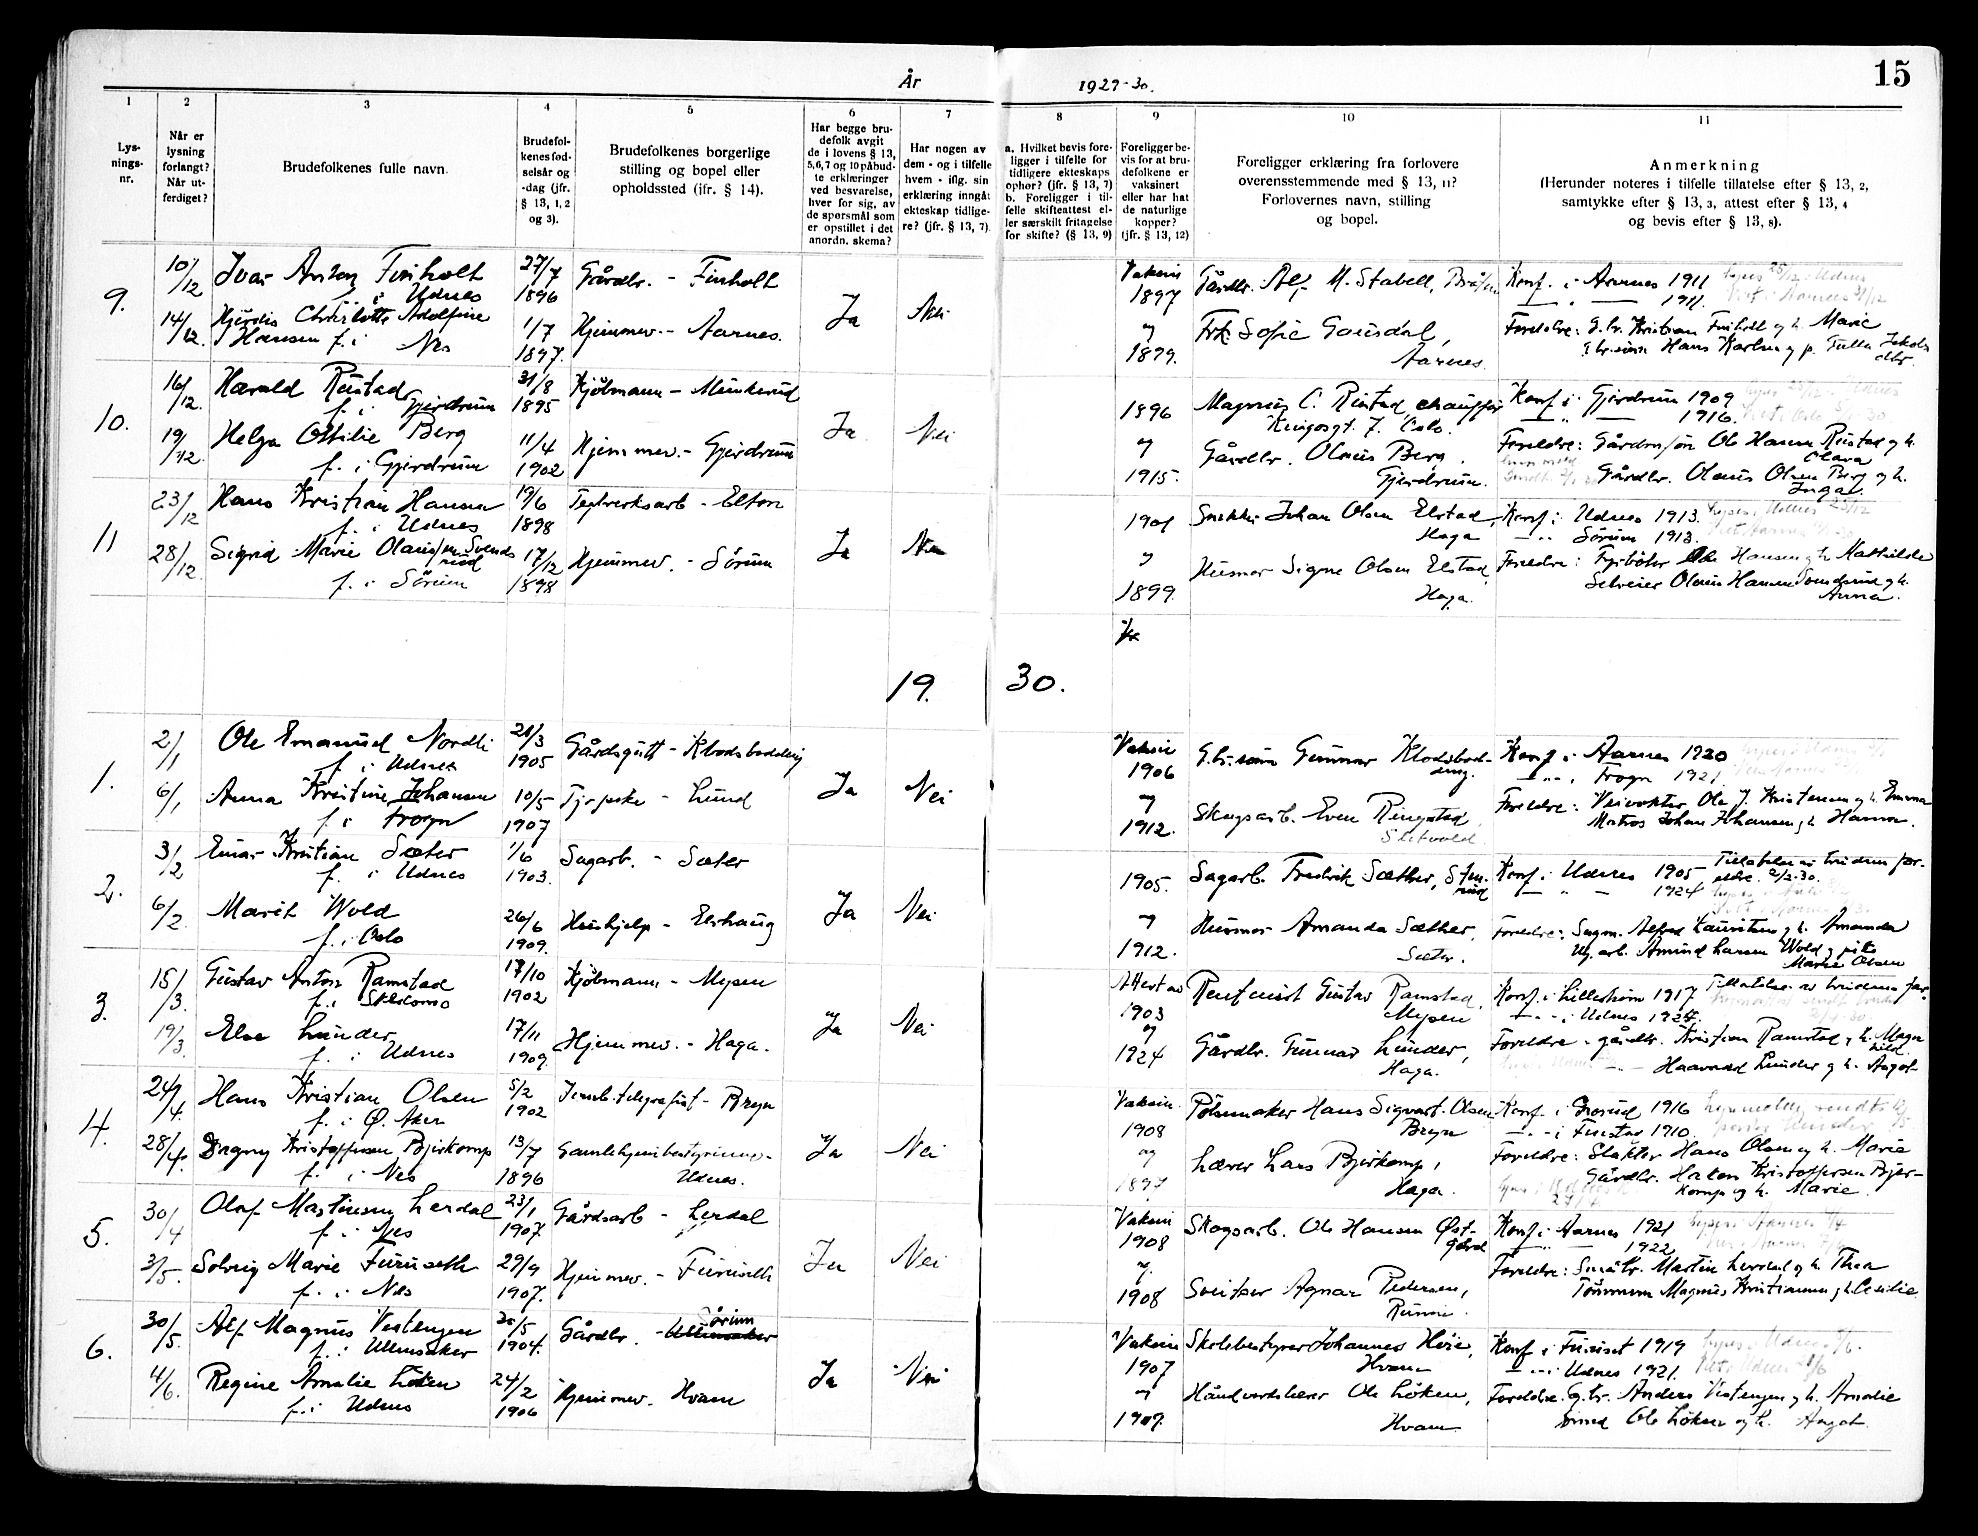 År 1929-30. 15
1 2 3 4 5 6 7 8 9 10 11
Lys-
nings-
nr.
Når er
lysning
forlangt?
Når ut-
ferdiget?
Brudefolkenes fulle navn.
Brudefol-
kenes fød-
selsår og
-dag (jfr.
§ 13, 1, 2
og 3).
Brudefolkenes borgerlige
stilling og bopel eller
opholdssted (jfr. § 14).
Har begge bru-
defolk avgit
de i lovens § 13,
5, 6, 7 og 10 påbud-
te erklæringer
ved besvarelse,
hver for sig, av
de spørsmål som
er opstillet i det
anordn. skema?
Har nogen av
dem - og i tilfelle
hvem - iflg. sin
erklæring inngåt
ekteskap tidlige-
re? (jfr. § 13, 7).
a. Hvilket bevis fore-
ligger i tilfelle for
tidligere ekteskaps
ophør? (jfr. § 13, 7)
b. Foreligger i til-
felle skifteattest el-
ler særskilt fritagelse
for skifte? (§ 13, 9)
Foreligger be-
vis for at bru-
defolkene er
vaksinert
eller har hat
de naturlige
kopper?
(jfr. § 13, 12)
Foreligger erklæring fra forlovere
overensstemmende med § 13, 11?
Forlovernes navn, stilling
og bopel.
Anmerkning
(Herunder noteres i tilfelle tillatelse efter § 13, 2,
samtykke efter § 13, 3, attest efter § 13, 4
og bevis efter § 13, 8).
9.
10/12 Ivar Anton Finholt 27/7 Gårdbr. - Finholt
f. i Udnes 1896
14/12 Hjørdis Charlotte Adolfine
Hansen f. i Nes 1/7 1897. Hjemmev. - Aarnes.
Ja Nei
Vaksin 1897 og 1899.
Gårdbr. Alf M. Stabell,
Frk. Sofie Gausdal,
Aarnes.
Konf. i Aarnes 1911
1911.
Foreldre: G.br. Kristian Finholt og h. Marie
Hans Karlsen og
10.
16/12. Harald Rustad 31/8 Kjølmann - Munkerud
f. i Gjerdrum 1895
19/12. Helga Ottilie Berg 11/4 Hjemmev. - Gjerdrum
f. i Gjerdrum 1902
Ja Nei
1896 og 1915.
Magnus C. Rustad, chauffør
Kingosgt. 7. Oslo.
Gårdbr. Olaus Berg,
Gjerdrum.
Konf. i Gjerdrum 1909
1916.
Foreldre: Ole Hansen Rustad og h.
Olava
Gårdbr. Olaus Olsen Berg og h.
Inga.
11
23/12 Hans Kristian Hansen 19/6 Teglverksarb - Elton
f. i Udnes 1898
28/12. Sigrid Marie Svends
rud 17/12 Hjemmev. - Sørum
f. i Sørum 1898
Ja Nei
1901 og 1899.
Snekker Johan Olsen Elstad,
Haga
Husmor Signe Olsen Elstad,
Haga.
Konf. i Udnes 1913.
Sørum 1913.
Foreldre: Fyrbøter Ole Hansen og h. Mathilde
Selveier Olaus Hansen Svendsrud og h.
Anna.
19. 30.
1.
2/1 Ole Emanuel Nordli 21/3 Gårdsgutt - Klodsbodding
f. i Udnes 1905
6/1 Anna Kristine Johansen 10/5 Tjpike - Lund
f. i Frogn 1907
Ja Nei
Vaksin 1906 og 1912.
G.br.sønn Gunnar Klodsbod-
ding.
Skogsarb. Even Ringstad,
Slitvold.
Konf. i Aarnes 1920
Frogn 1921
Foreldre: Veivokter Ole J. Kristensen og h. Emma
Matros Johan Johansen og h. Hanna.
2.
3/2 Einar Kristian Sæter 1/6 Sagarb. - Sæter
f. i Udnes 1903.
6/2 Marit Wold 26/6 Hushjelp - Elshaug
f. i Oslo 1909.
Ja Nei
1905. og 1912.
Sagarb. Fredrik Sæther, Sten-
rud
Husmor Amanda Sæther,
Sæter.
Konf. i Udnes 1905
1924
Tillatelse av brudens for-
eldre. 2/2-30.
Foreldre: Sagm. Alfred Lauritsen og h. Amanda
arb. Amund Larsen Wold og pike
Marie Olsen
3.
15/3. Gustav Anton Ramstad 17/10 Kjølmann - Mysen
f. i Skedsmo 1902
19/3. Else Lunder 17/11 Hjemmev. - Haga.
f. i Udnes 1909.
Ja Nei
Attest av 1903 og 1924
Rentenist Gustav Ramstad,
Mysen
Gårdbr. Gunnar Lunder,
Haga.
Konf. i Lillestrøm 1917
i Udnes 1924.
Tillatelse av brudens for.
Foreldre - gårdbr. Kristian Ramstad og h. Magn
hild.
Haavard Lunder og h. Aagot
4.
24/4. Hans Kristian Olsen 5/2 Jernb.telegrafist - Bryn
f. i Ø. Aker 1902
28/4. Dagny Kristoffersen Bjerkomp 13/7 Gamlehjembestyrinne -
f. i Nes 1896 Udnes.
Ja Nei
Vaksin. 1908 og 1897
Pølsemaker Hans Sigvart Olsen
Bryn
Lærer Lars Bjerkomp,
Haga.
Konf. i Grorud 1916
i Funstad 1910.
Foreldre: Slakter Hans Olsen og h. Marie
Gårdbr. Haken Kristoffersen Bjer-
komp og h. Marie.
5.
30/4 Olaf Martinsen Lerdal 23/1 Gårdsarb - Lerdal
f. i Nes 1907.
3/5. Solveig Marie Furuseth 29/9 Hjemmev. - Furuseth
f. i Nes 1907.
Ja Nei
Vaksin 1908 og 1908
Skogsarb. Ole Hansen Øst-
gård
Sveitser Agnar Pedersen,
Konf. i Aarnes 1921
1922
Foreldre: Småbr. Martin Lerdal og h. Thea
Tømmerm. Magnus Kristiansen og h. Cecilie
6.
30/5. Alf Magnus Vestengen 20/5 Gårdbr. - Ullensaker Sørum
f. i Ullensaker 1904.
4/6. Regine Amalie Løken 24/2 Hjemmev. Hvam
f. i Udnes 1906
Ja Nei
Vaksin 1907 og 1907.
Skolebestyrer Johannes Høie,
Hvam
Håndverkslærer Ole Løken,
Hvam
Konf. i Furuset 1919
i Udnes 1921.
Foreldre. G.br. Anders Vestengen og h. Amalie
Smed Ole Løken og h. Aagot.